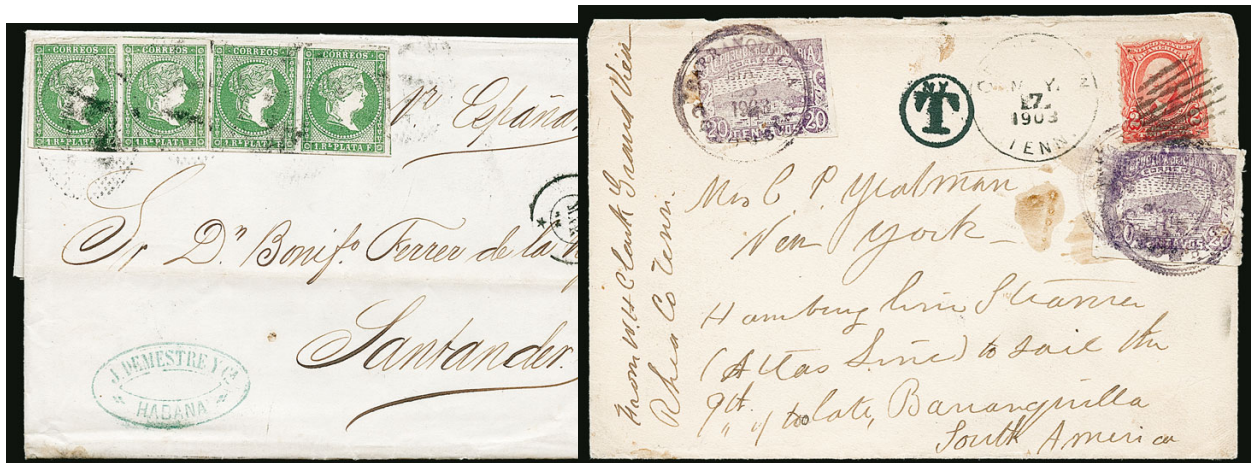 CORREOS CORREOS CORREOS CORREOS
1 Rl PLATA F. 1 Rl PLATA F. 1 Rl PLATA F. 1 Rl PLATA F.
pr España
Sr Dn Bonifo Ferrer de la
Santander.
J. DEMESTRE Y Ca.
HABANA
From W. H. Clark Grand View
Rhea Co Tenn
1903
20 CENTAVOS 20
T
17
1903
TENN.
2 2
REPUBLICA DE COLOMBIA
CORREOS
20 CENTAVOS 20
Mrs C P. Yeatman
New York
Hamburg line Steamer
(Atlas Line) to sail the
9th, if to late, Barranquilla
South America